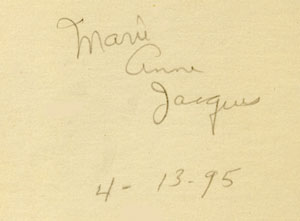 Marie
Anne
Jacques
4 - 13 - 95